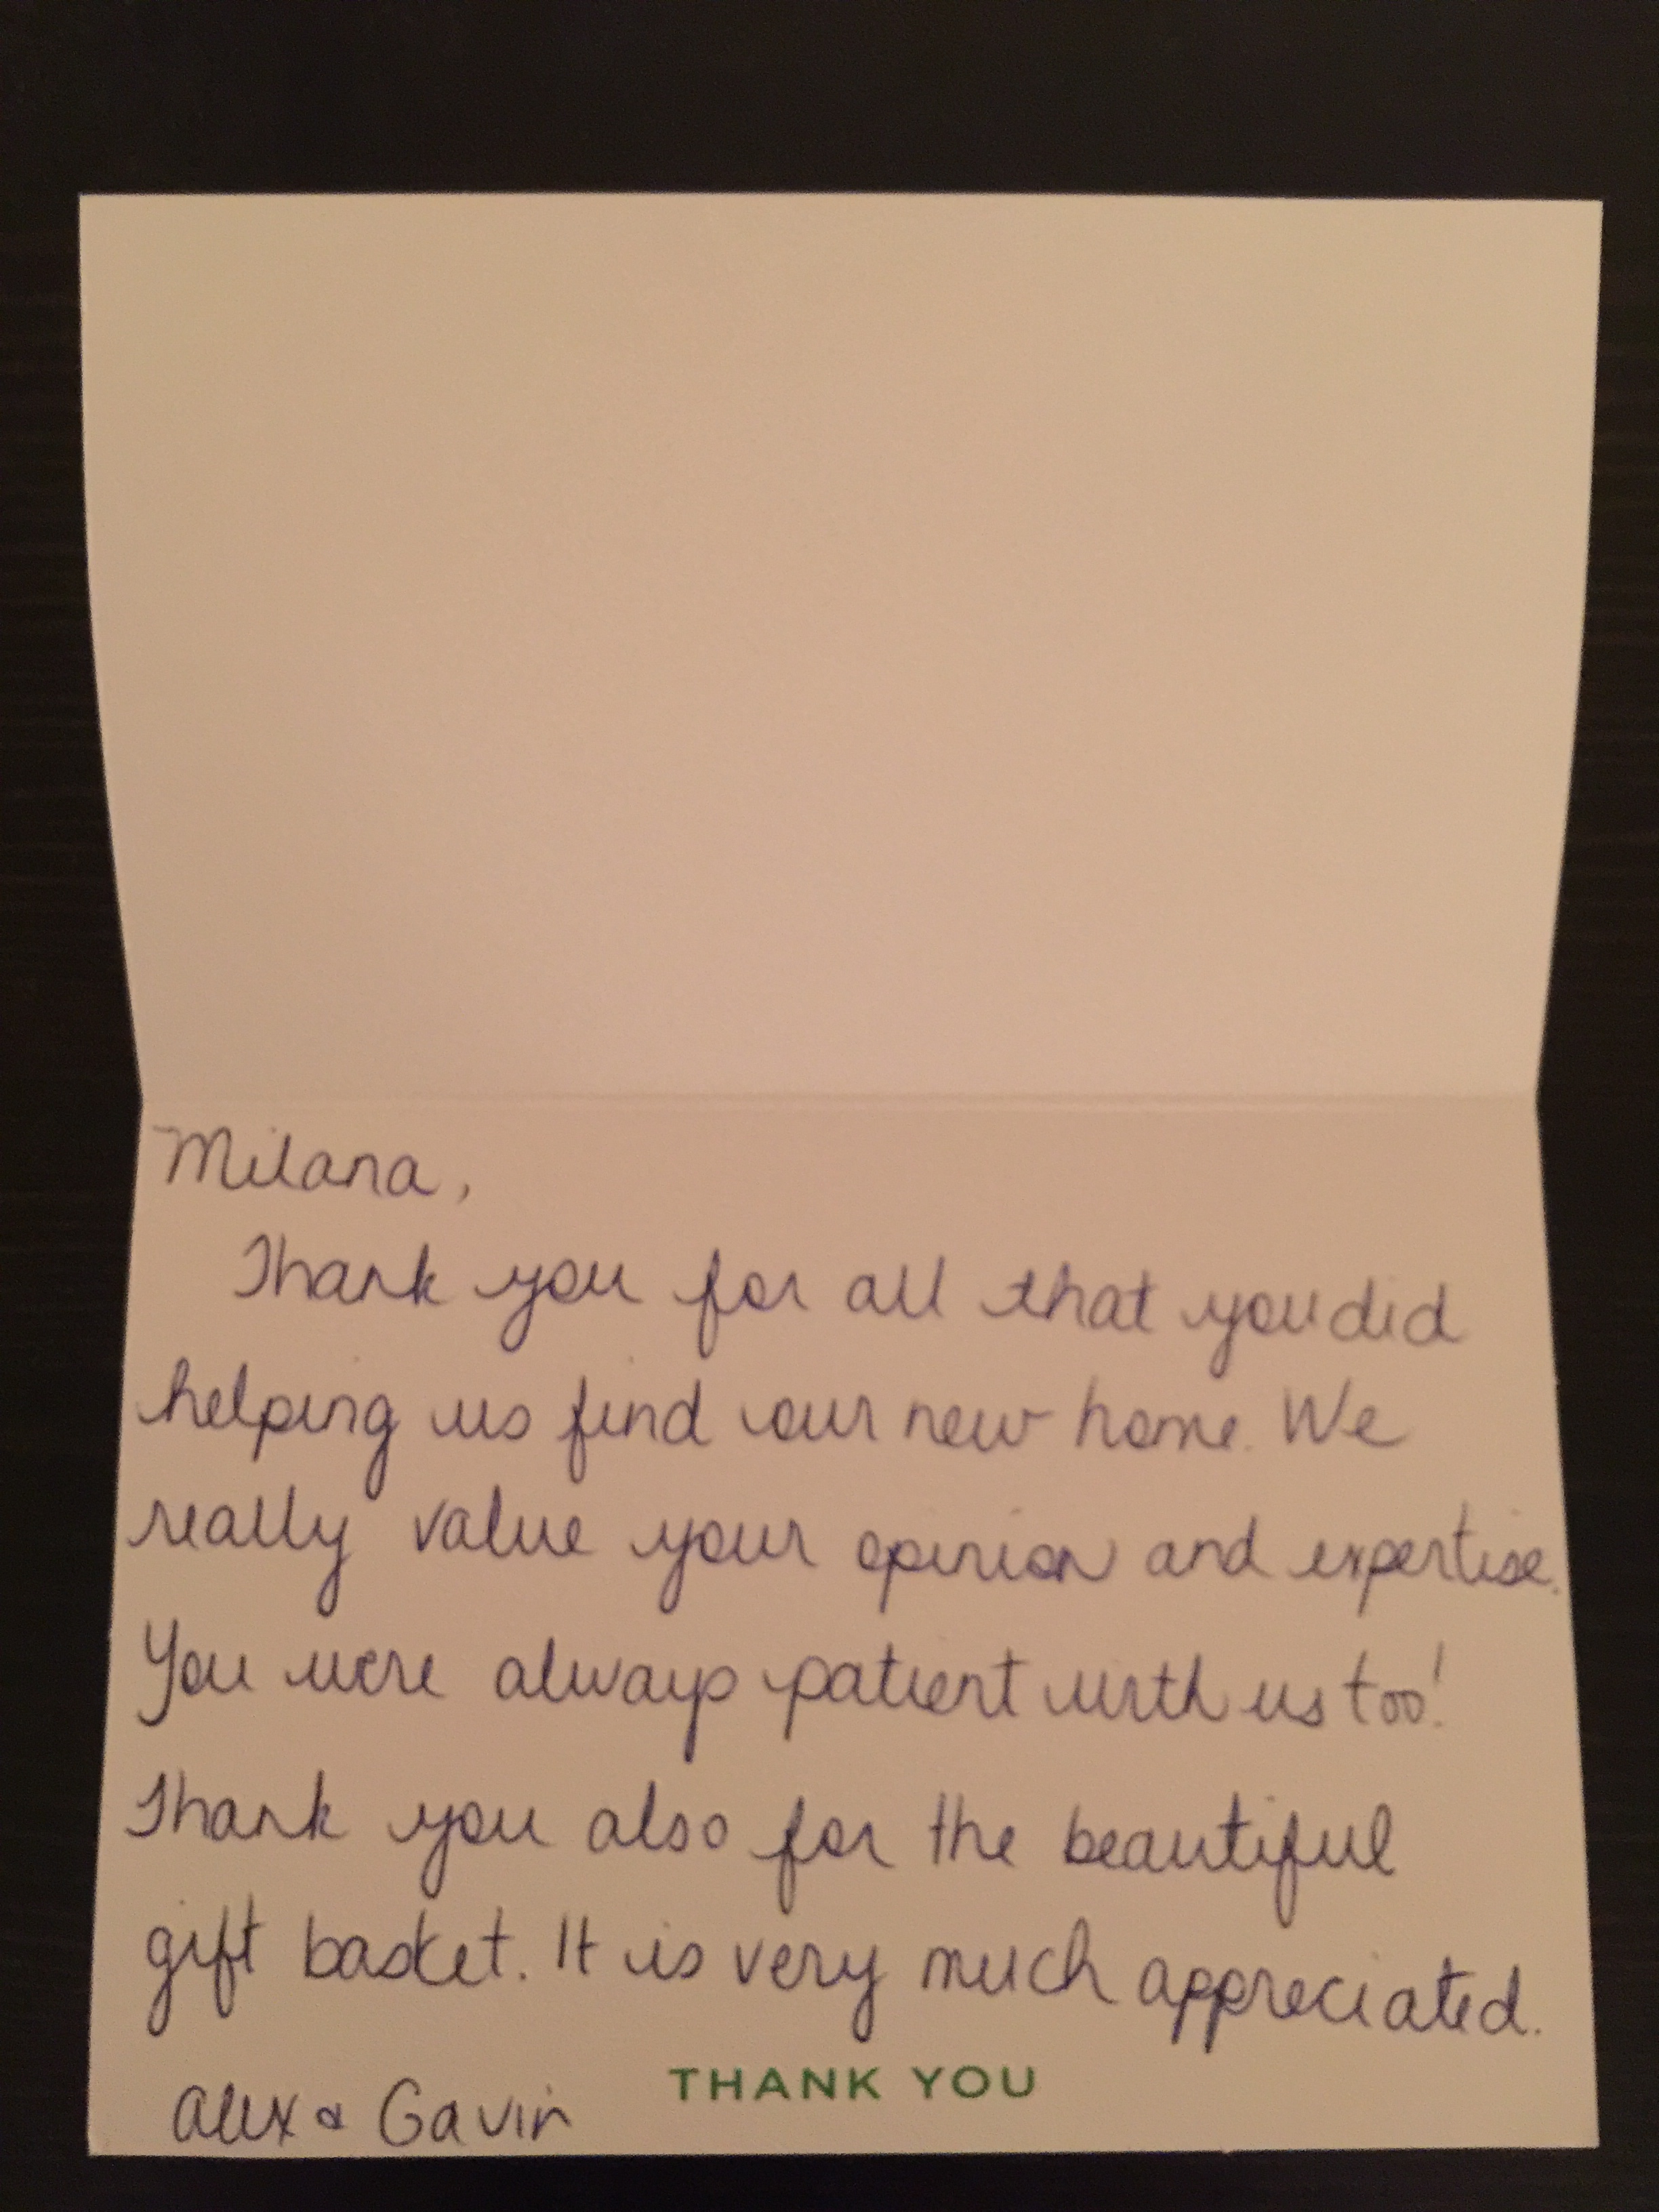 Milana,
Thank you for all that you did
helping us find our new home. We
really value your opinion and expertise.
You were always patient with us too!
Thank you also for the beautiful
gift basket. It is very much appreciated.
THANK YOU
Alex & Gavin